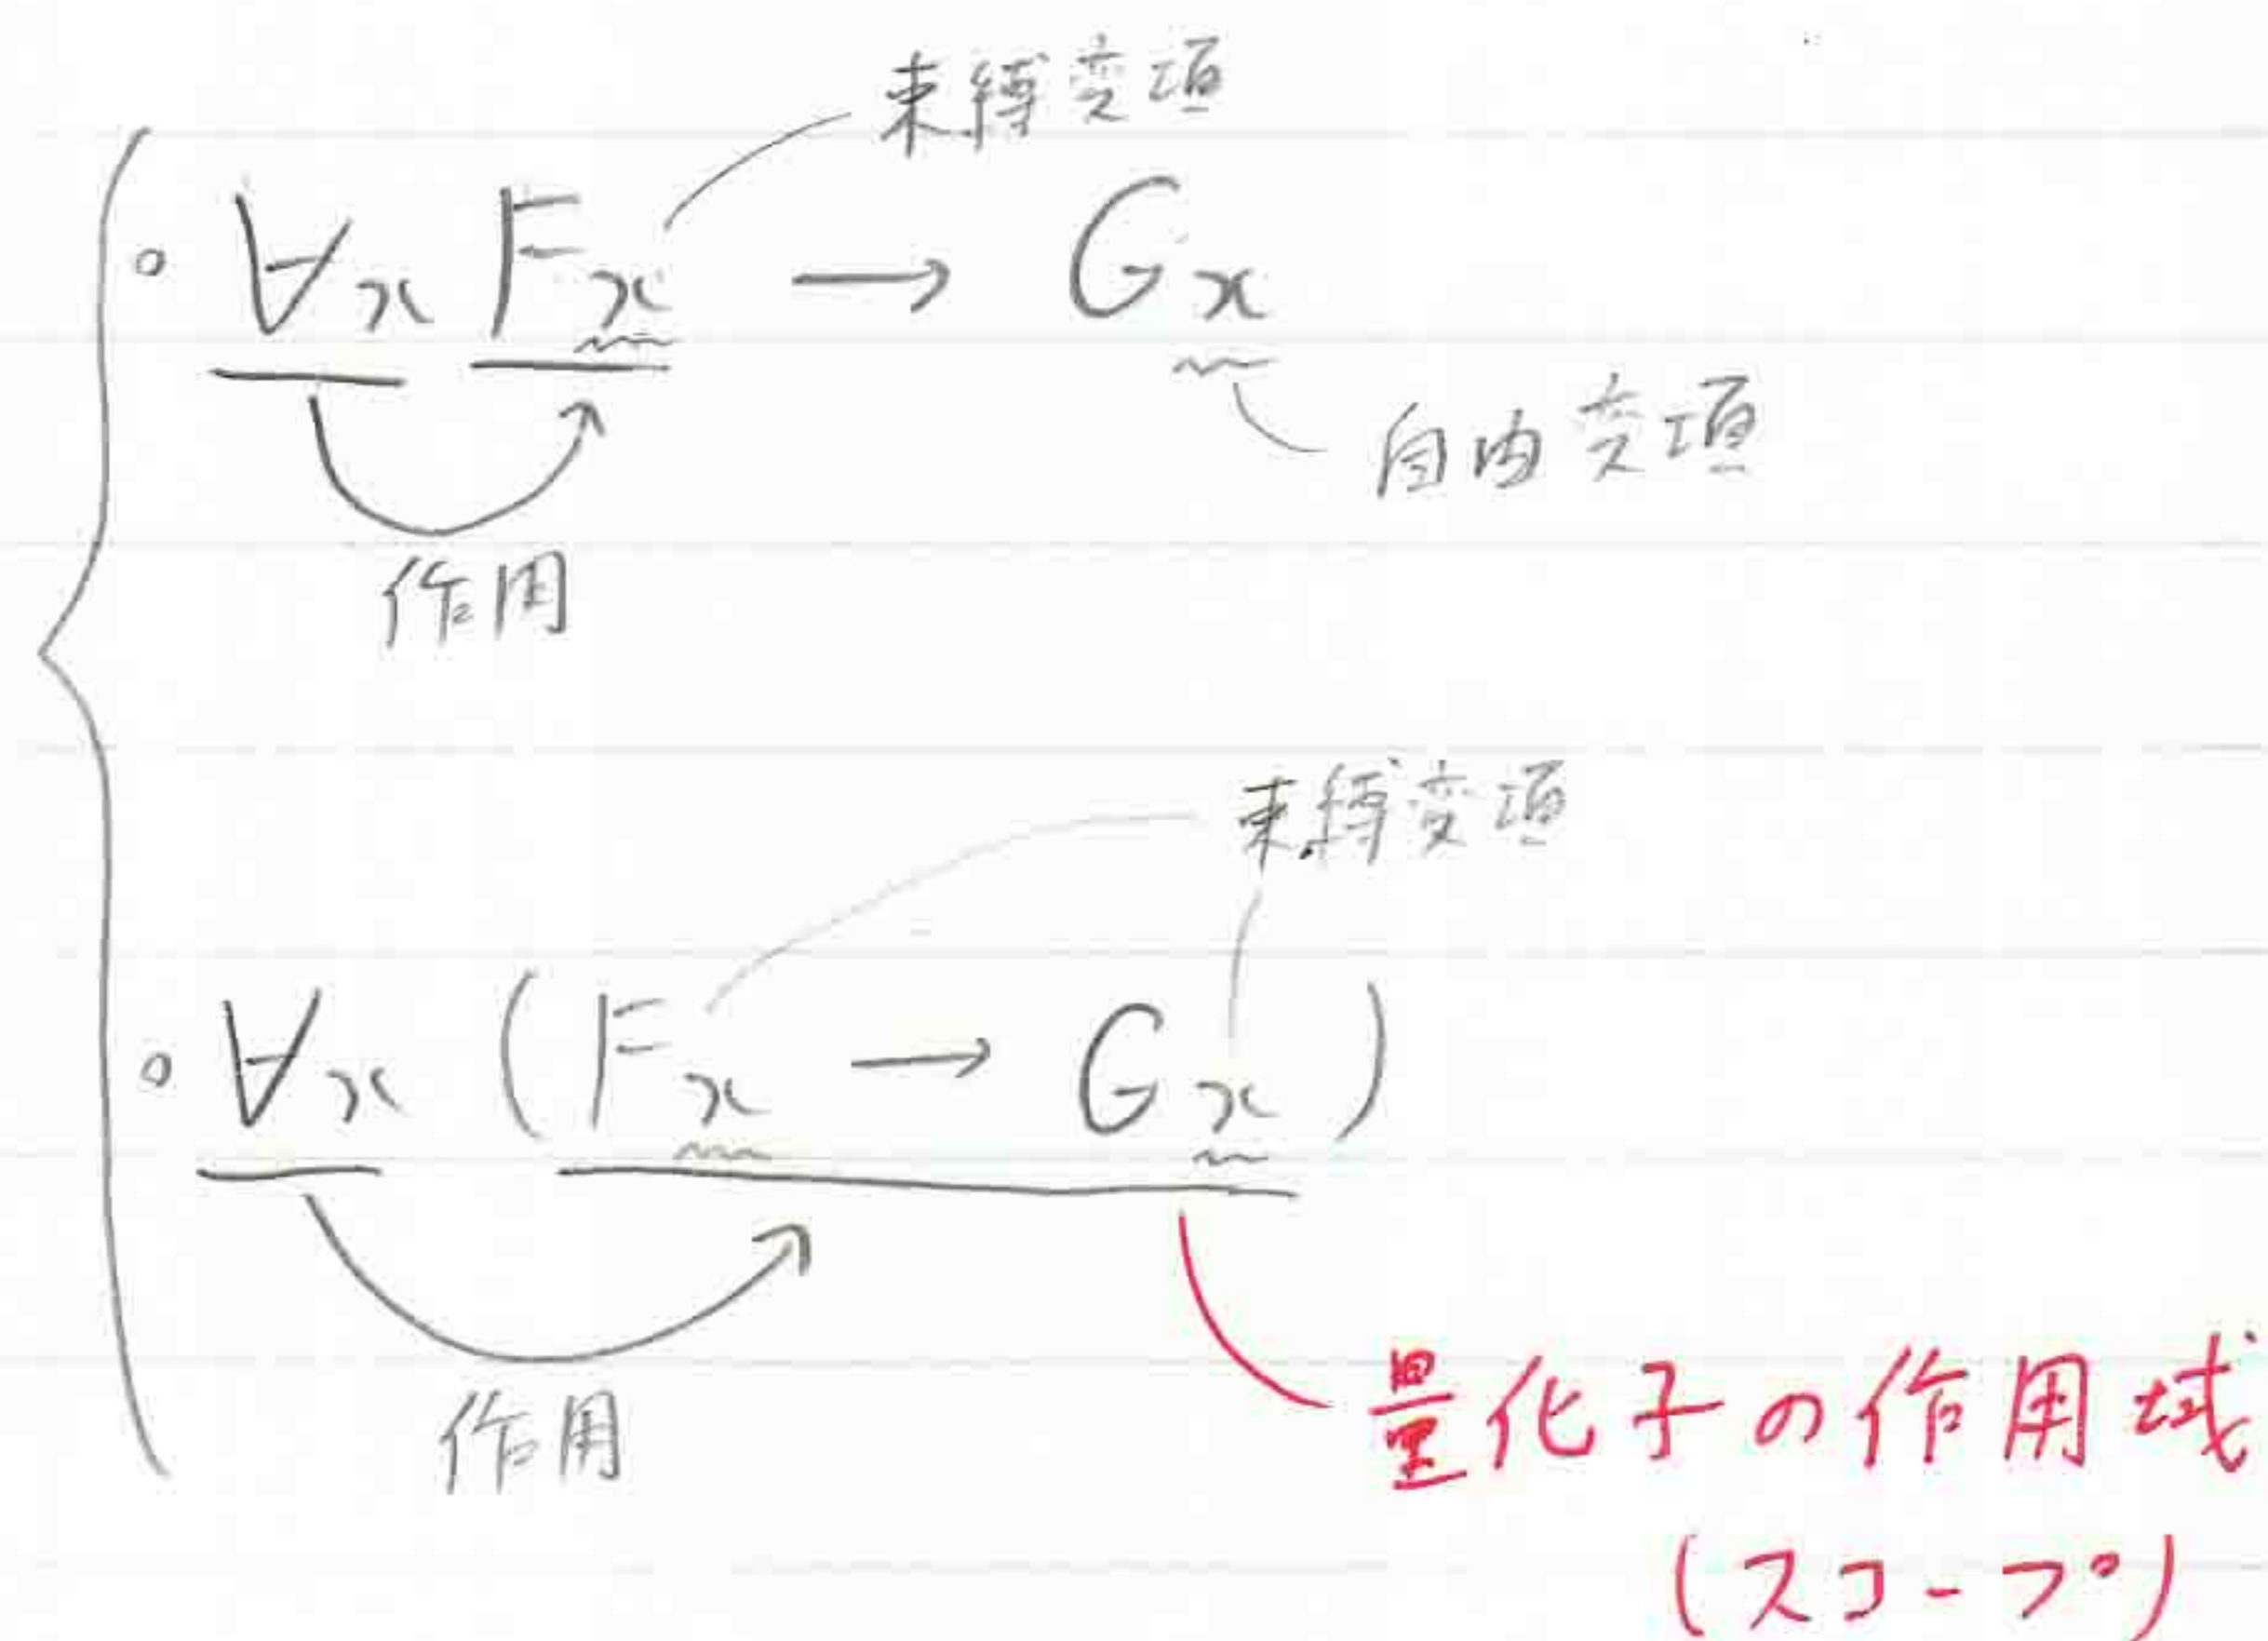 束縛変項
∀x Fx → Gx
自由変項
作用
束縛変項
∀x (Fx → Gx)
作用
量化子の作用域
(スコープ)